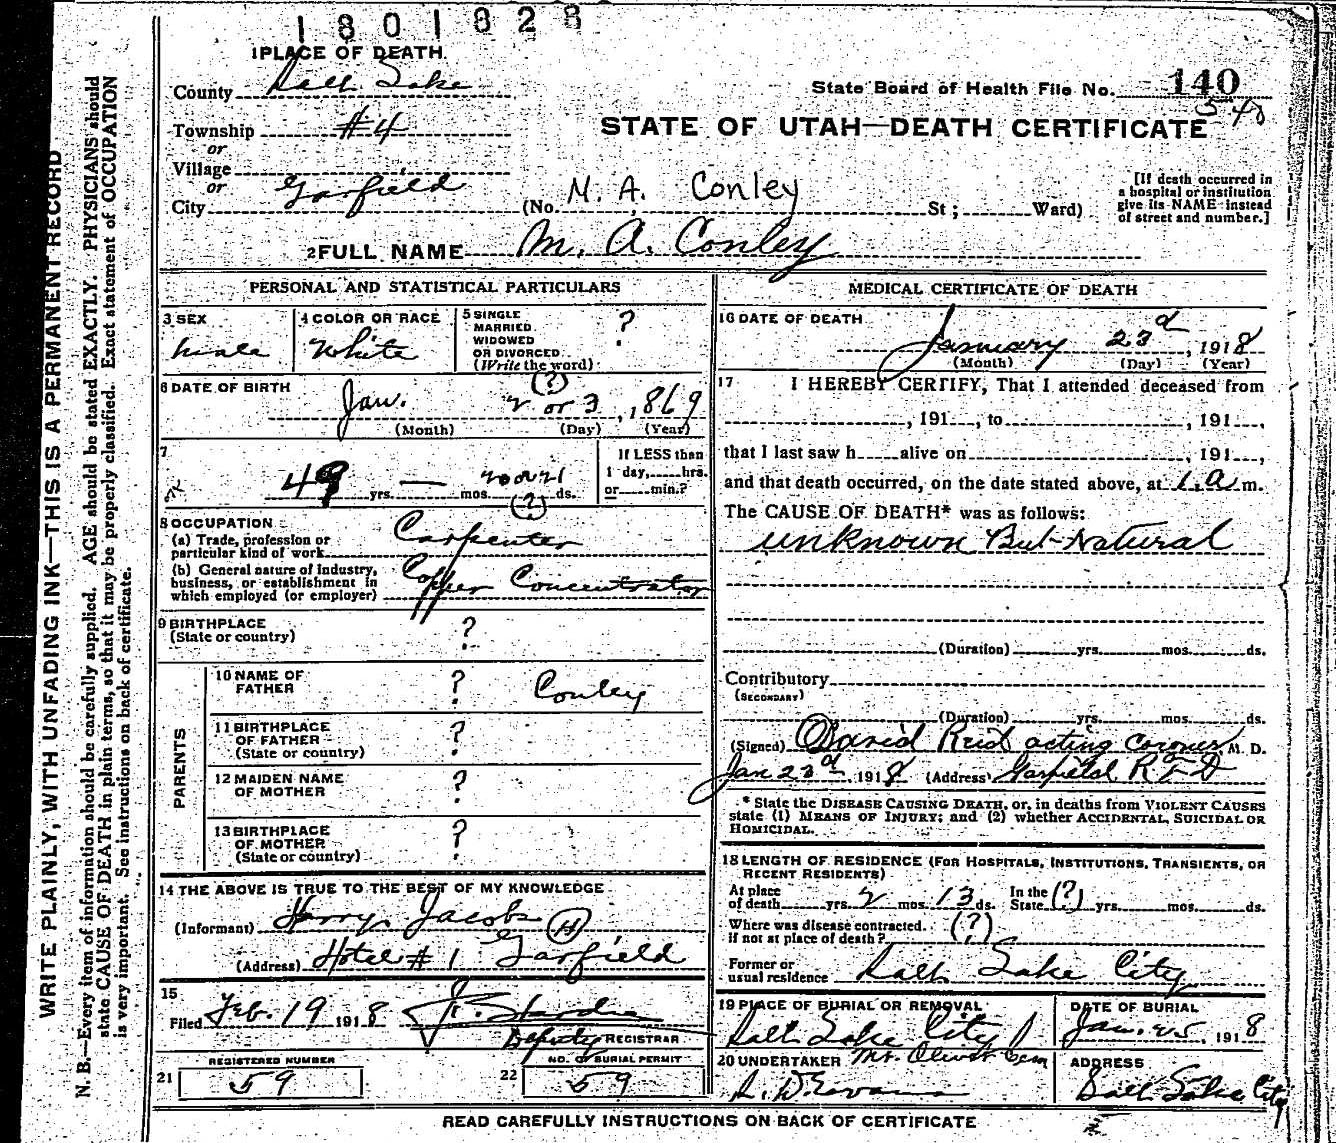 1801828
1 PLACE OF DEATH.
County Salt Lake
State Board of Health File No. 140
548
Township #4
STATE OF UTAH—DEATH CERTIFICATE
or
Village
or
City Garfield (No. M. A. Conley St; Ward)
[If death occurred in
a hospital or institution
give its NAME instead
of street and number.]
2 FULL NAME M. A. Conley
PERSONAL AND STATISTICAL PARTICULARS
3 SEX
male
4 COLOR OR RACE
White
5 SINGLE
MARRIED
WIDOWED
OR DIVORCED
(Write the word)
?
6 DATE OF BIRTH
(?)
Jan. 2 or 3, 1869
(Month) (Day) (Year)
7
49 yrs. — mos. 20 or 21 ds.
(?)
If LESS than
1 day, hrs.
or min.?
8 OCCUPATION
(a) Trade, profession or
particular kind of work Carpenter
(b) General nature of industry,
business, or establishment in
which employed (or employer) Copper Concentrator
9 BIRTHPLACE
(State or country) ?
PARENTS
10 NAME OF
FATHER ? Conley
11 BIRTHPLACE
OF FATHER
(State or country) ?
12 MAIDEN NAME
OF MOTHER ?
13 BIRTHPLACE
OF MOTHER
(State or country) ?
14 THE ABOVE IS TRUE TO THE BEST OF MY KNOWLEDGE
(Informant) Harry Jacobs (H)
(Address) Hotel #1 Garfield
15
Filed Feb. 19 1918
Deputy REGISTRAR
REGISTERED NUMBER
21 59
NO. OF BURIAL PERMIT
22 59
MEDICAL CERTIFICATE OF DEATH
16 DATE OF DEATH
January 23d, 1918
(Month) (Day) (Year)
17 I HEREBY CERTIFY, That I attended deceased from
, 191 , to , 191 ,
that I last saw h alive on , 191 ,
and that death occurred, on the date stated above, at 1.a m.
The CAUSE OF DEATH* was as follows:
unknown But Natural
(Duration) yrs. mos. ds.
Contributory
(SECONDARY)
(Duration) yrs. mos. ds.
(Signed) David Reid acting coroner, M. D.
Jan 23d, 1918 (Address) Garfield R F D
* State the DISEASE CAUSING DEATH, or, in deaths from VIOLENT CAUSES
state (1) MEANS OF INJURY; and (2) whether ACCIDENTAL, SUICIDAL OR
HOMICIDAL.
18 LENGTH OF RESIDENCE (FOR HOSPITALS, INSTITUTIONS, TRANSIENTS, OR
RECENT RESIDENTS)
At place
of death yrs. 2 mos. 13 ds.
In the
State (?) yrs. mos. ds.
Where was disease contracted.
if not at place of death? (?)
Former or
usual residence Salt Lake City
19 PLACE OF BURIAL OR REMOVAL
Salt Lake City
Mt. Olivet Cem
DATE OF BURIAL
Jan. 25, 1918
20 UNDERTAKER
S. D. Evans
ADDRESS
Salt Lake City
READ CAREFULLY INSTRUCTIONS ON BACK OF CERTIFICATE
WRITE PLAINLY, WITH UNFADING INK—THIS IS A PERMANENT RECORD
N. B.—Every item of information should be carefully supplied. AGE should be stated EXACTLY. PHYSICIANS should
state CAUSE OF DEATH in plain terms, so that it may be properly classified. Exact statement of OCCUPATION
is very important. See instructions on back of certificate.